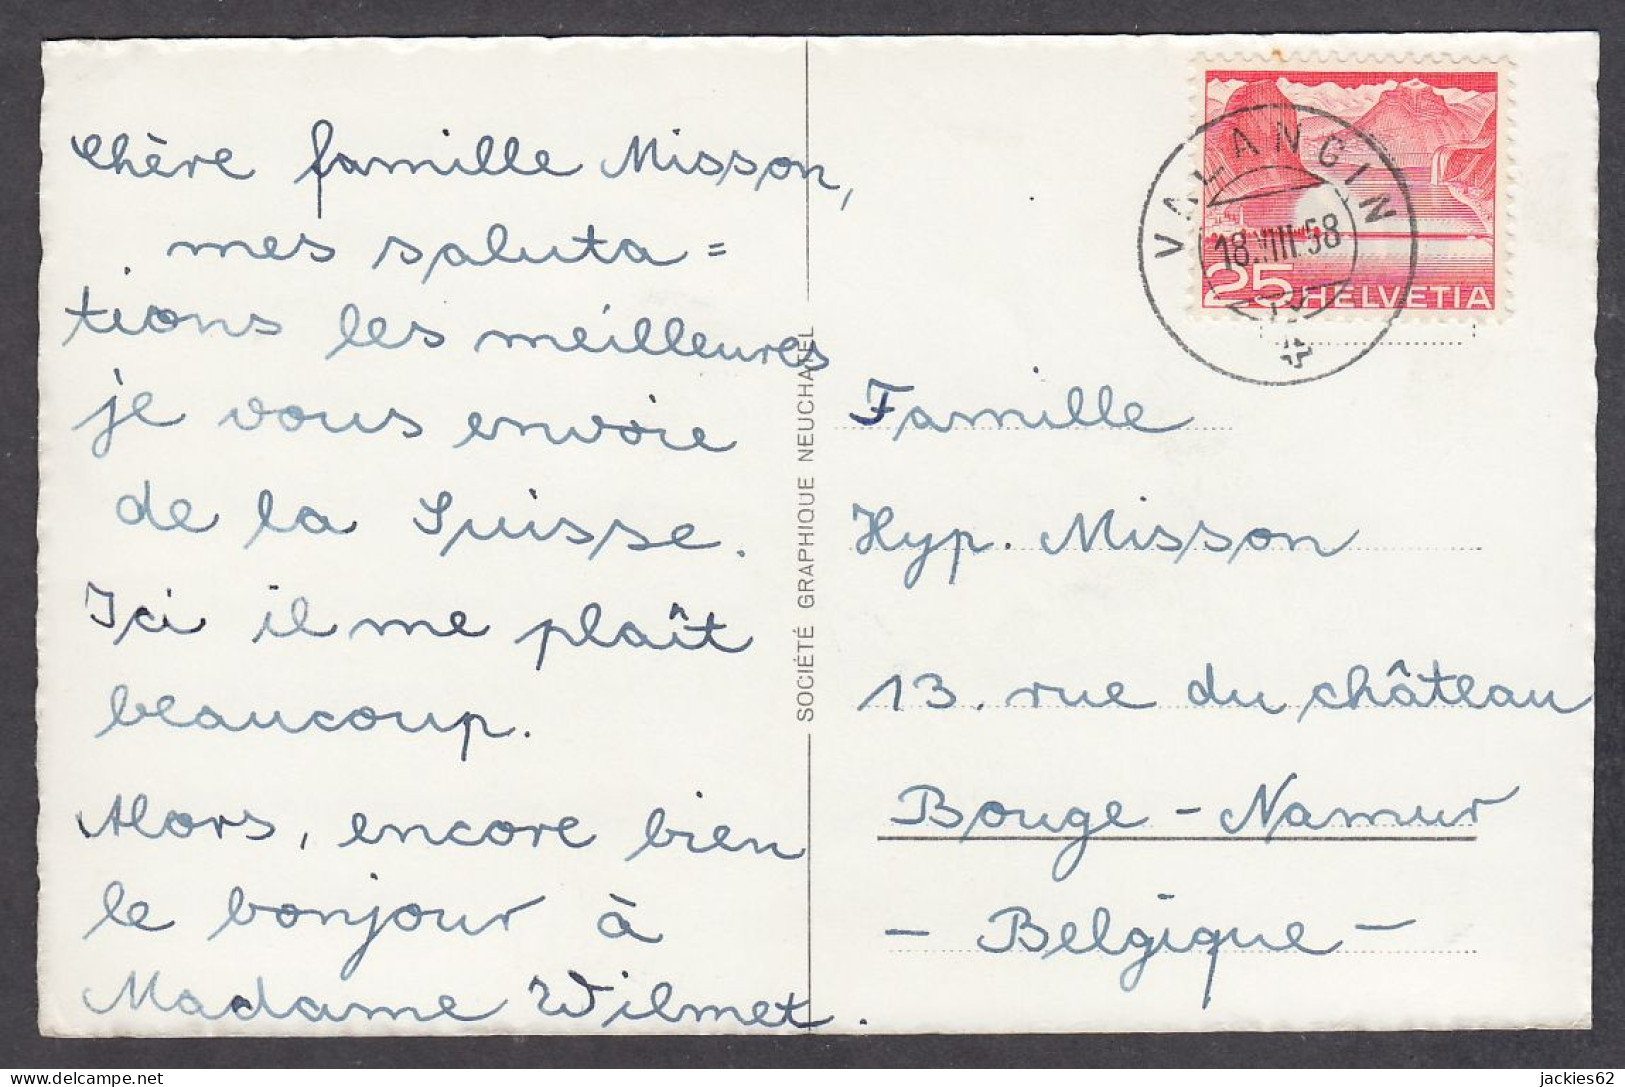 Chère famille Misson,
mes saluta=
tions les meilleures
je vous envoie
de la Suisse.
Ici il me plaît
beaucoup.
Alors, encore bien
le bonjour à
Madame Wilmet.
SOCIÉTÉ GRAPHIQUE NEUCHATEL
VALANGIN
18.VIII.58
25 HELVETIA
Famille
Hyp. Misson
13. rue du château
Bouge - Namur
- Belgique -
delcampe.net
jackies62